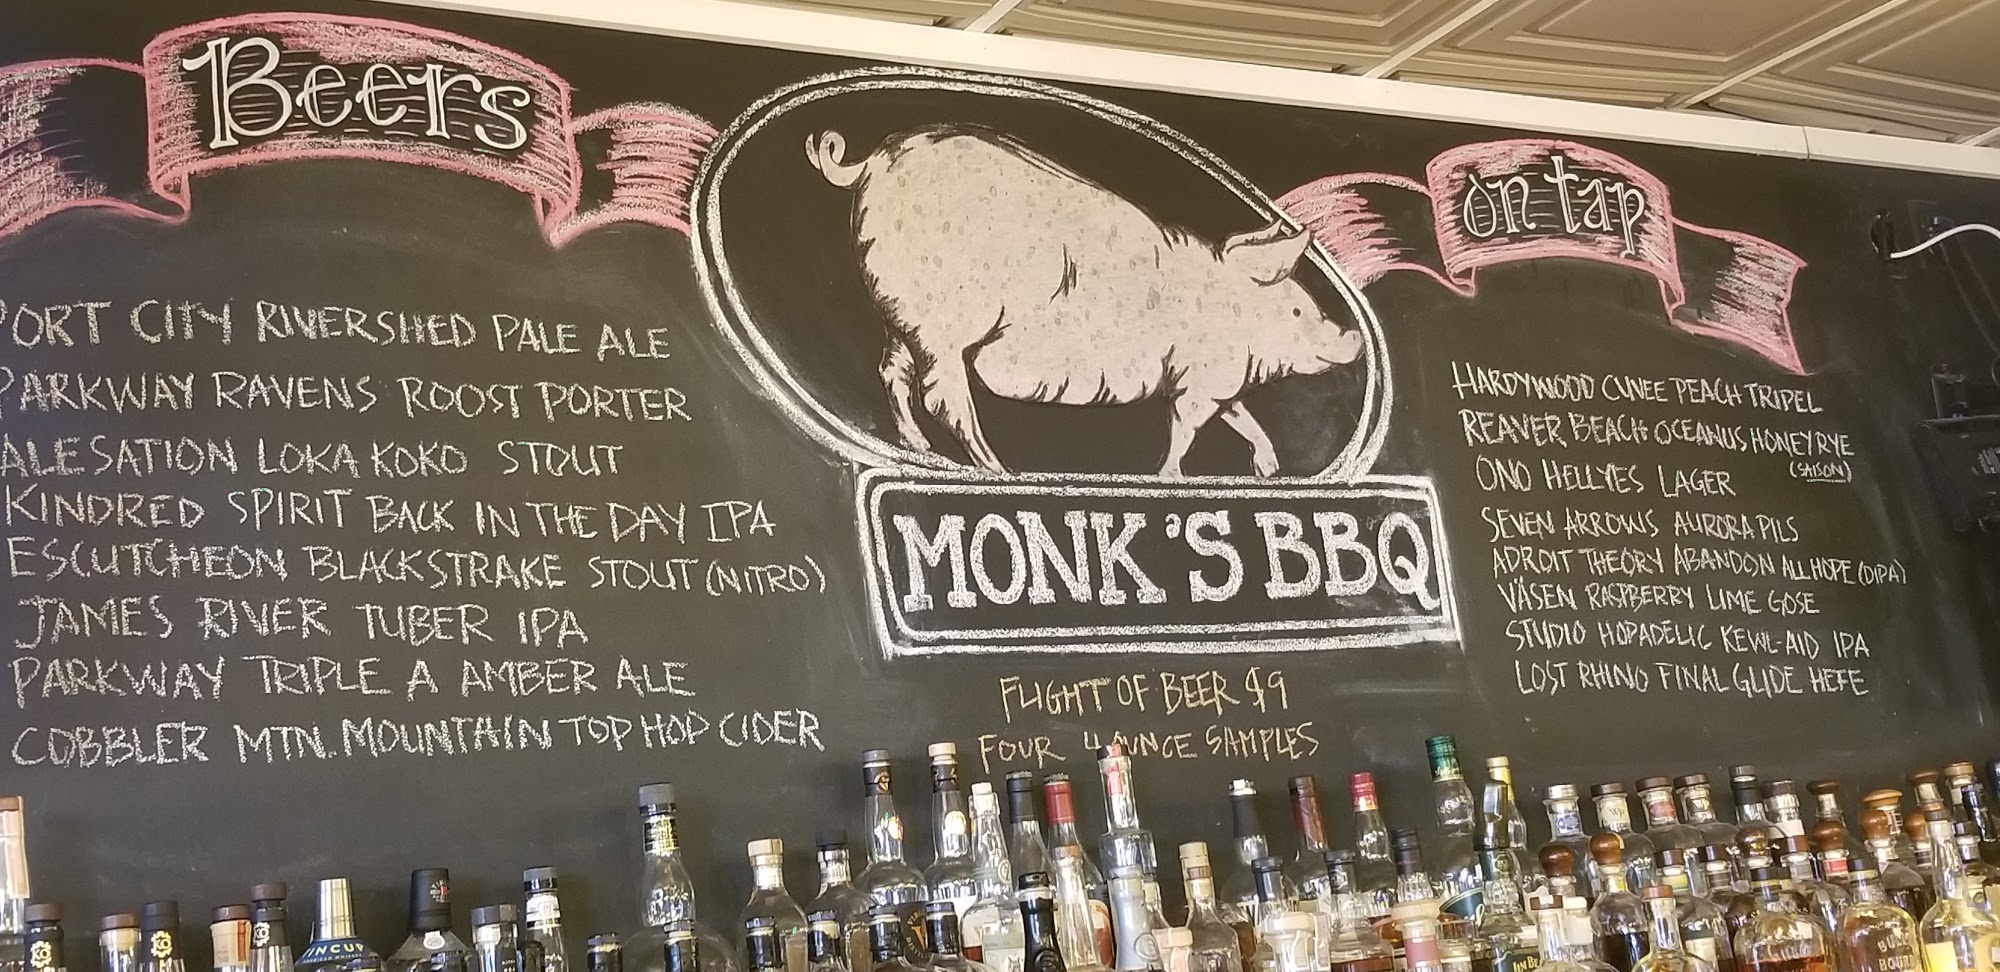 Beers
on tap
PORT CITY RIVERSHED PALE ALE
PARKWAY RAVENS ROOST PORTER
ALESATION LOKA KOKO STOUT
KINDRED SPIRIT BACK IN THE DAY IPA
ESCUTCHEON BLACKSTRAKE STOUT (NITRO)
JAMES RIVER TUBER IPA
PARKWAY TRIPLE A AMBER ALE
COBBLER MTN. MOUNTAIN TOP HOP CIDER
MONK'S BBQ
FLIGHT OF BEER $9
FOUR 4 OUNCE SAMPLES
HARDYWOOD CUVEE PEACH TRIPEL
REAVER BEACH OCEANUS HONEY RYE
(SAISON)
ONO HELLYES LAGER
SEVEN ARROWS AURORA PILS
ADROIT THEORY ABANDON ALL HOPE (DIPA)
VÄSEN RASPBERRY LIME GOSE
STUDIO HOPADELIC KEWL-AID IPA
LOST RHINO FINAL GLIDE HEFE